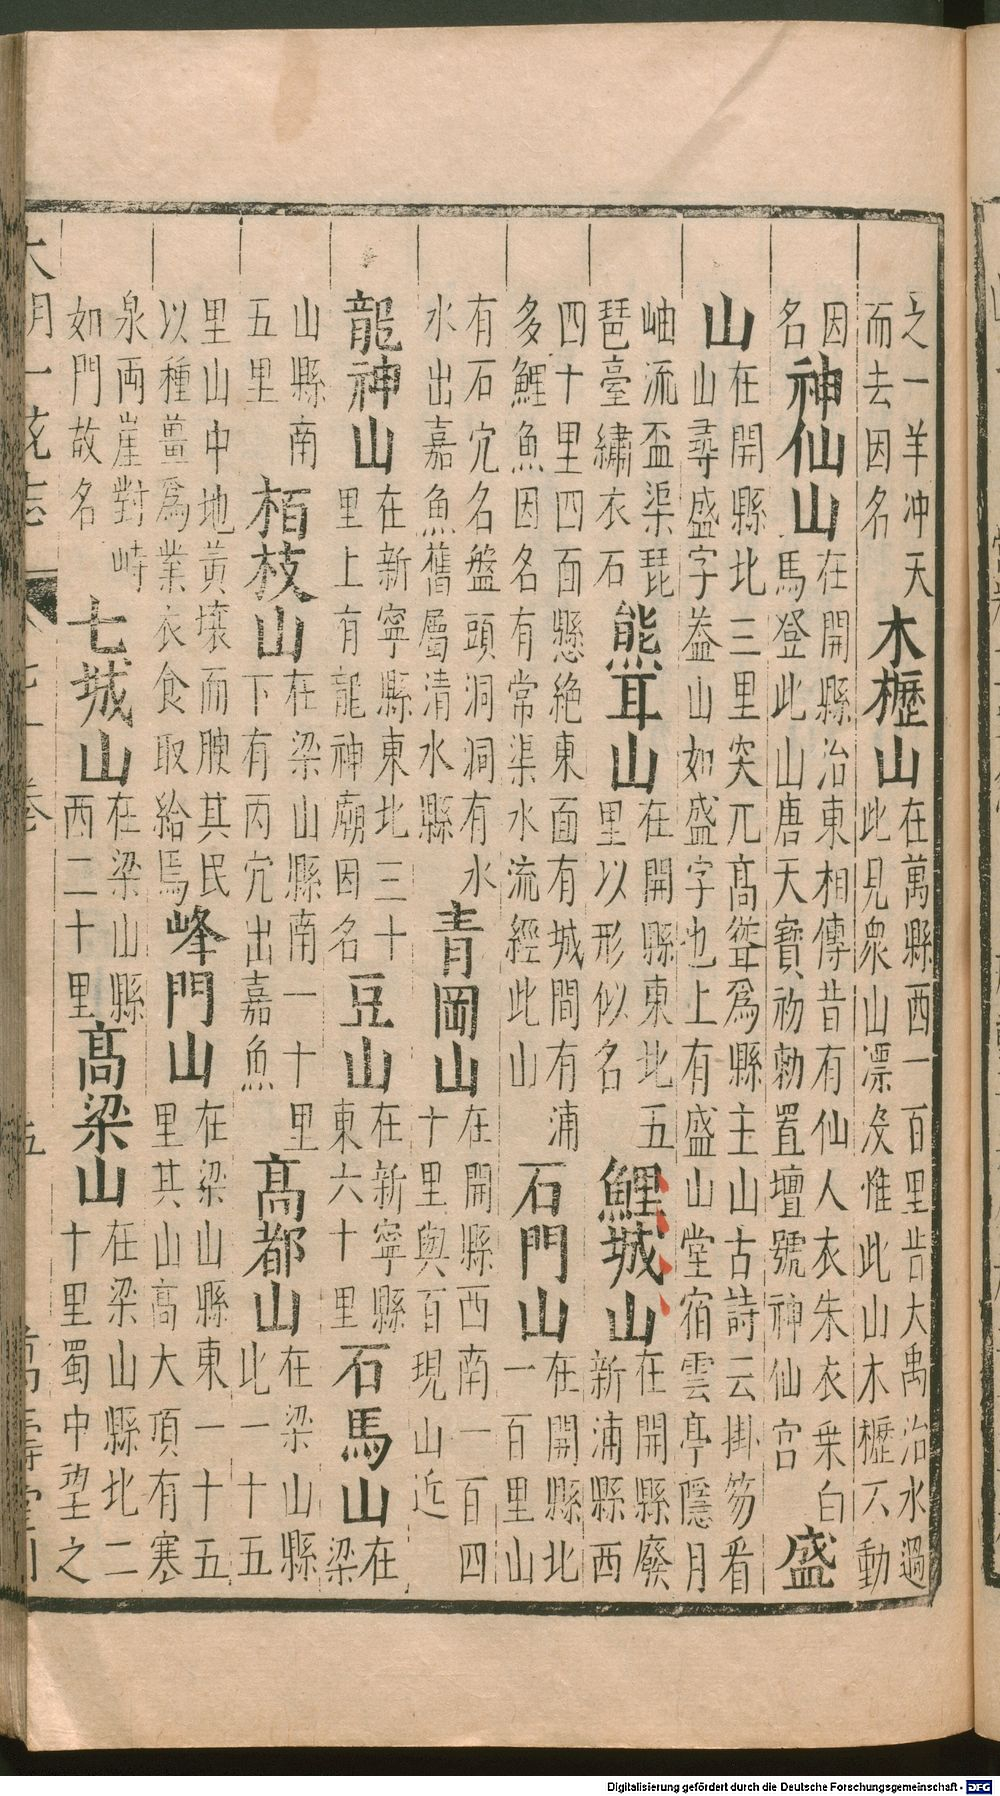 之一羊冲天而去因名木櫪山在萬縣西一百里昔大禹治水過此見衆山漂没惟此山木櫪不動
因名神仙山在開縣治東相傳昔有仙人衣朱衣乗白馬登此山唐天寳初勅置壇號神仙宫盛
山在開縣北三里突兀髙聳爲縣主山古詩云掛笏看山尋盛字葢山如盛字也上有盛山堂宿雲亭隱月
岫流盃渠琵琶臺繡衣石熊耳山在開縣東北五里以形似名鯉城山在開縣廢新浦縣西
四十里四面懸絶東面有城間有浦多鯉魚因名有常渠水流經此山石門山在開縣北一百里山
有石穴名盤頭洞洞有水水出嘉魚舊屬清水縣青岡山在開縣西南一百四十里與百現山近
龍神山在新寧縣東北三十里上有龍神廟因名豆山在新寧縣東六十里石馬山在梁
山縣南五里栢枝山在梁山縣南一十里下有丙穴出嘉魚髙都山在梁山縣北一十五
里山中地黄壤而腴其民以種薑爲業衣食取給焉峰門山在梁山縣東一十五里其山髙大頂有塞
泉两崖對峙如門故名七城山在梁山縣西二十里髙梁山在梁山縣北二十里蜀中望之
Digitalisierung gefördert durch die Deutsche Forschungsgemeinschaft - DFG